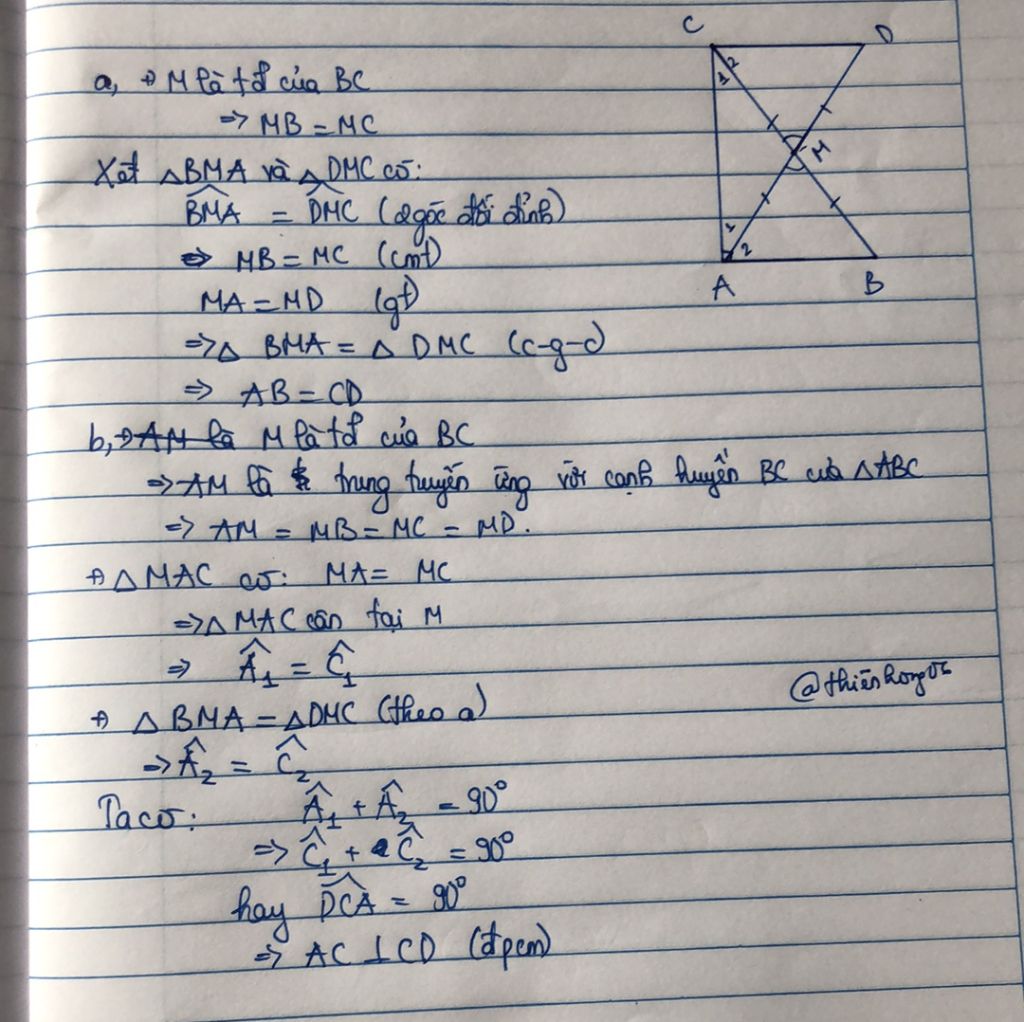 a, +) M là tđ của BC
=> MB = MC
Xét △BMA và △DMC có:
BMA = DMC (2 góc đối đỉnh)
=> MB = MC (cmt)
MA = MD (gt)
=> △ BMA = △ DMC (c-g-c)
=> AB = CD
b, +) AM là M là tđ của BC
=> AM là trung tuyến ứng với cạnh huyền BC của △ABC
=> AM = MB = MC = MD.
+) △MAC có: MA = MC
=> △MAC cân tại M
=> Â₁ = Ĉ₁
+) △ BMA = △DMC (theo a)
=> Â₂ = Ĉ₂
Ta có: Â₁ + Â₂ = 90°
=> Ĉ₁ + Ĉ₂ = 90°
hay DCA = 90°
=> AC ⊥ CD (đpcm)
C D
1 2
M
1 2
A B